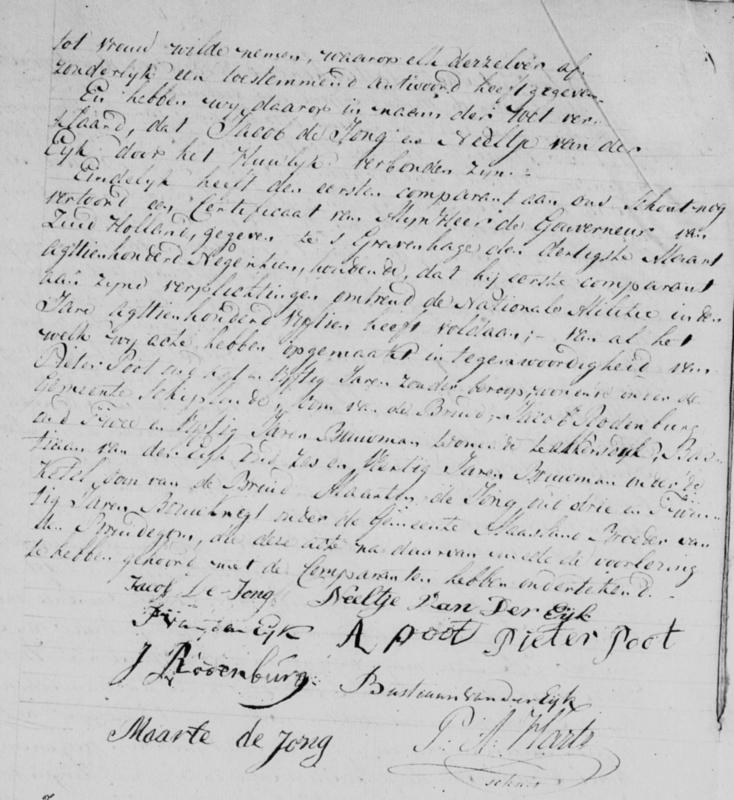 tot vrouw wilde nemen, waarop elk derzelver af-
zonderlyk een toestemmend antwoord heeft gegeven
En hebben wy daarop in naam der Wet ver-
klaard, dat Jacob de Jong en Neeltje van der
Eyk door het Huwlyk verbonden zyn.-
Eindelyk heeft den eersten comparant aan ons Schout nog
vertoond een Certificaat van Mijn Heer de Gouverneur van
Zuid Holland, gegeven te s Gravenhage den dertigste Maart
agttienhonderd Negentien, houdende, dat hij eerste comparant
aan zyne verplichtingen omtrend de Nationale Militie in den
Jare agttienhonderd Vyftien heeft voldaan; - van al het
welk wy acte hebben opgemaakt in tegenwoordigheid van
Pieter Poot oud agt en vyftig Jaren zonder beroep, woonende onder de
Gemeente Schipluiden, Oom van de Bruid, Jacob Rodenburg
oud Twee en vyftig Jaren Bouwman wonende te Bas-
tiaan van der Eijk oud Zes en Veertig Jaren Bouwman onder de
Ketel Oom van de Bruid Maarten de Jong, oud drie en Twin-
tig Jaren Bouwknegt onder de Gemeente Maasland Broeder van
den Bruidegom, die deze acte na daarvan mede de voorlezing
te hebben gehoord met de Comparanten hebben ondertekend.
Jacob De Jong Neeltje Van Der Eijk
van der Eyk A poot Pieter Poot
J Roodenburg. Bastiaan van der Eijk
Maarte de Jong P. A.
schout